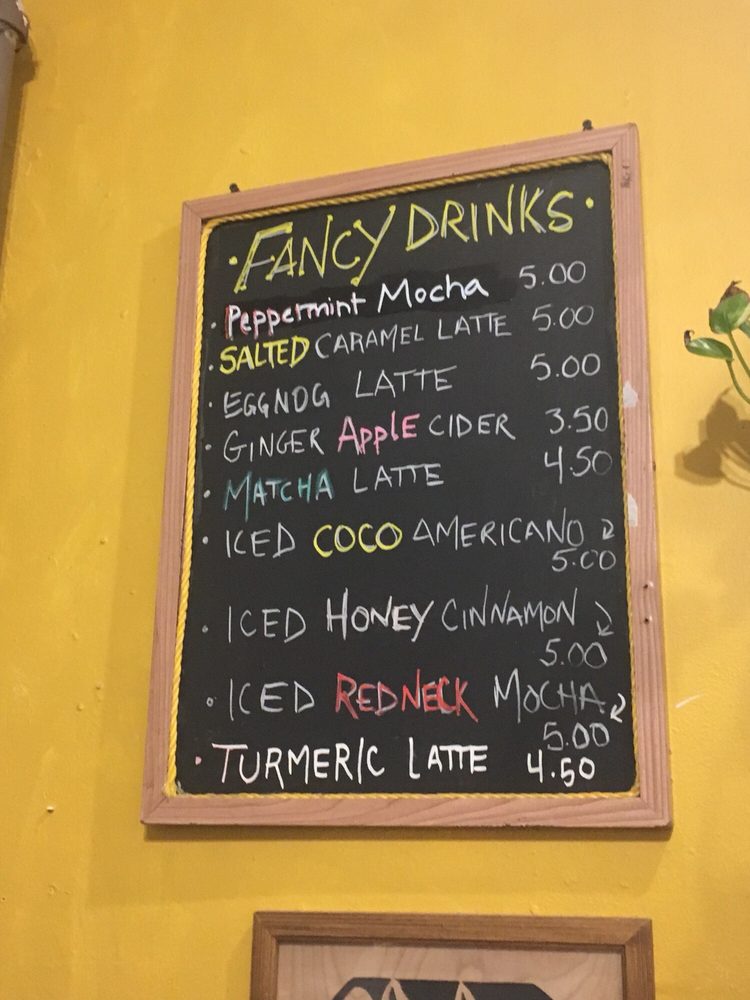 ·FANCY DRINKS·
· Peppermint Mocha 5.00
· SALTED CARAMEL LATTE 5.00
· EGGNOG LATTE 5.00
· GINGER APPLE CIDER 3.50
· MATCHA LATTE 4.50
· ICED COCO AMERICANO
5.00
· ICED HONEY CINNAMON
5.00
· ICED REDNECK MOCHA
5.00
· TURMERIC LATTE 4.50